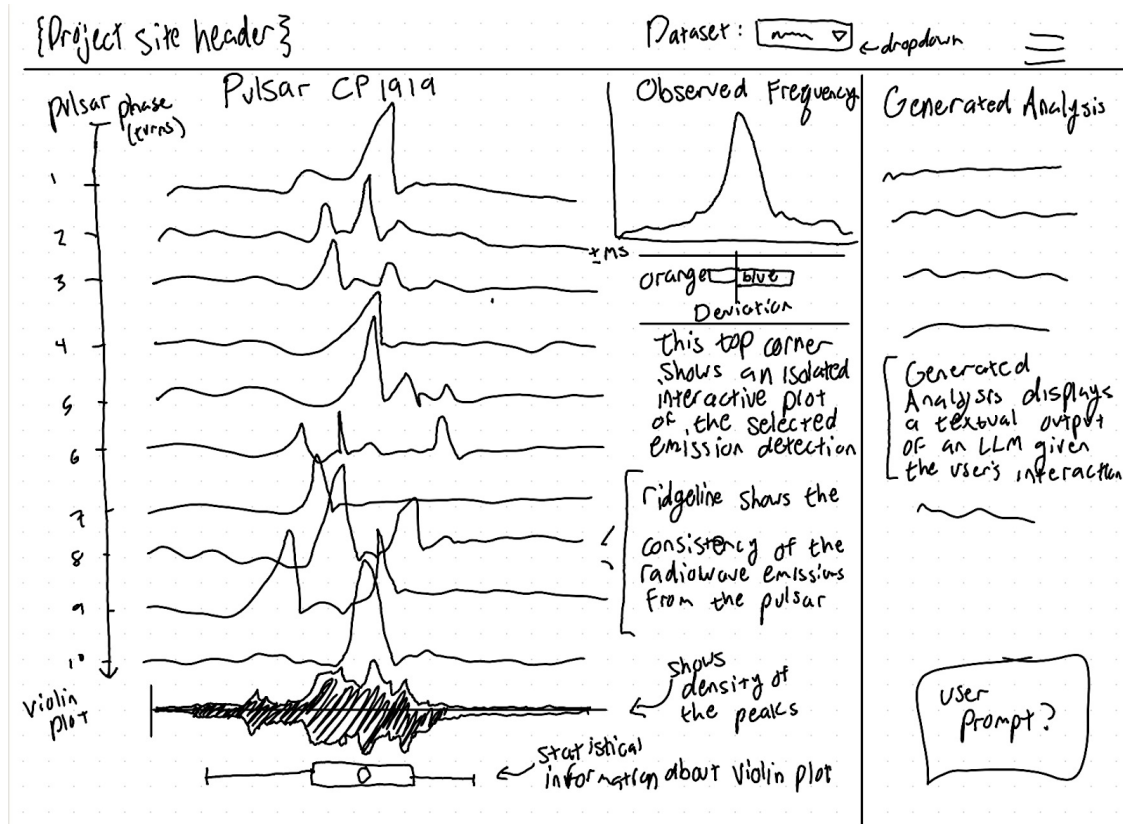 {Project site header}
Dataset:
dropdown
pulsar phase
(turns)
Pulsar CP 1919
1
2
3
4
5
6
7
8
9
10
Violin
plot
± ms
Observed Frequency
orange
blue
Deviation
This top corner
shows an isolated
interactive plot
of the selected
emission detection
ridgeline shows the
consistency of the
radiowave emissions
from the pulsar
shows
density of
the peaks
Statistical
information about violin plot
Generated Analysis
Generated
Analysis displays
a textual output
of an LLM given
the user's interaction
user
prompt?